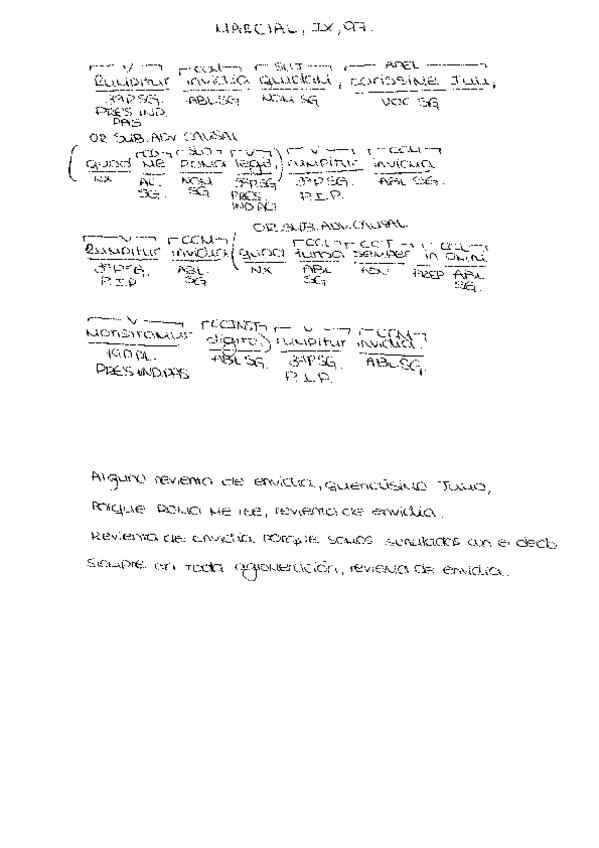 MARCIAL, IX, 97.
V CCM SUJ APEL
Rumpitur invidia quidam, carissime Iuli,
3ªP SG. ABL.SG NOM SG VOC SG
PRES. IND.
PAS
OR SUB. ADV CAUSAL
CD SUJ V V CCM
(quod ME Roma legit,) rumpitur invidia
NX AC. NOM 3ªP SG 3ªP SG. ABL SG.
SG. SG PRES. P.I.P.
IND ACT
OR. SUB. ADV. CAUSAL.
V CCM CCL CCT CCL
Rumpitur invidia (quod turba semper in omni
3ªP SG. ABL. NX ABL ADV PREP ABL
P.I.P SG SG SG.
V CCINST V CCM
Monstramur digito,) rumpitur invidia.
1ªP PL. ABL SG. 3ªP SG. ABL.SG.
PRES IND.PAS P.I.P.
Alguno revienta de envidia, queridísimo Julio,
Porque Roma me lee, revienta de envidia.
Revienta de envidia porque somos señalados con el dedo
siempre en toda aglomeración, revienta de envidia.